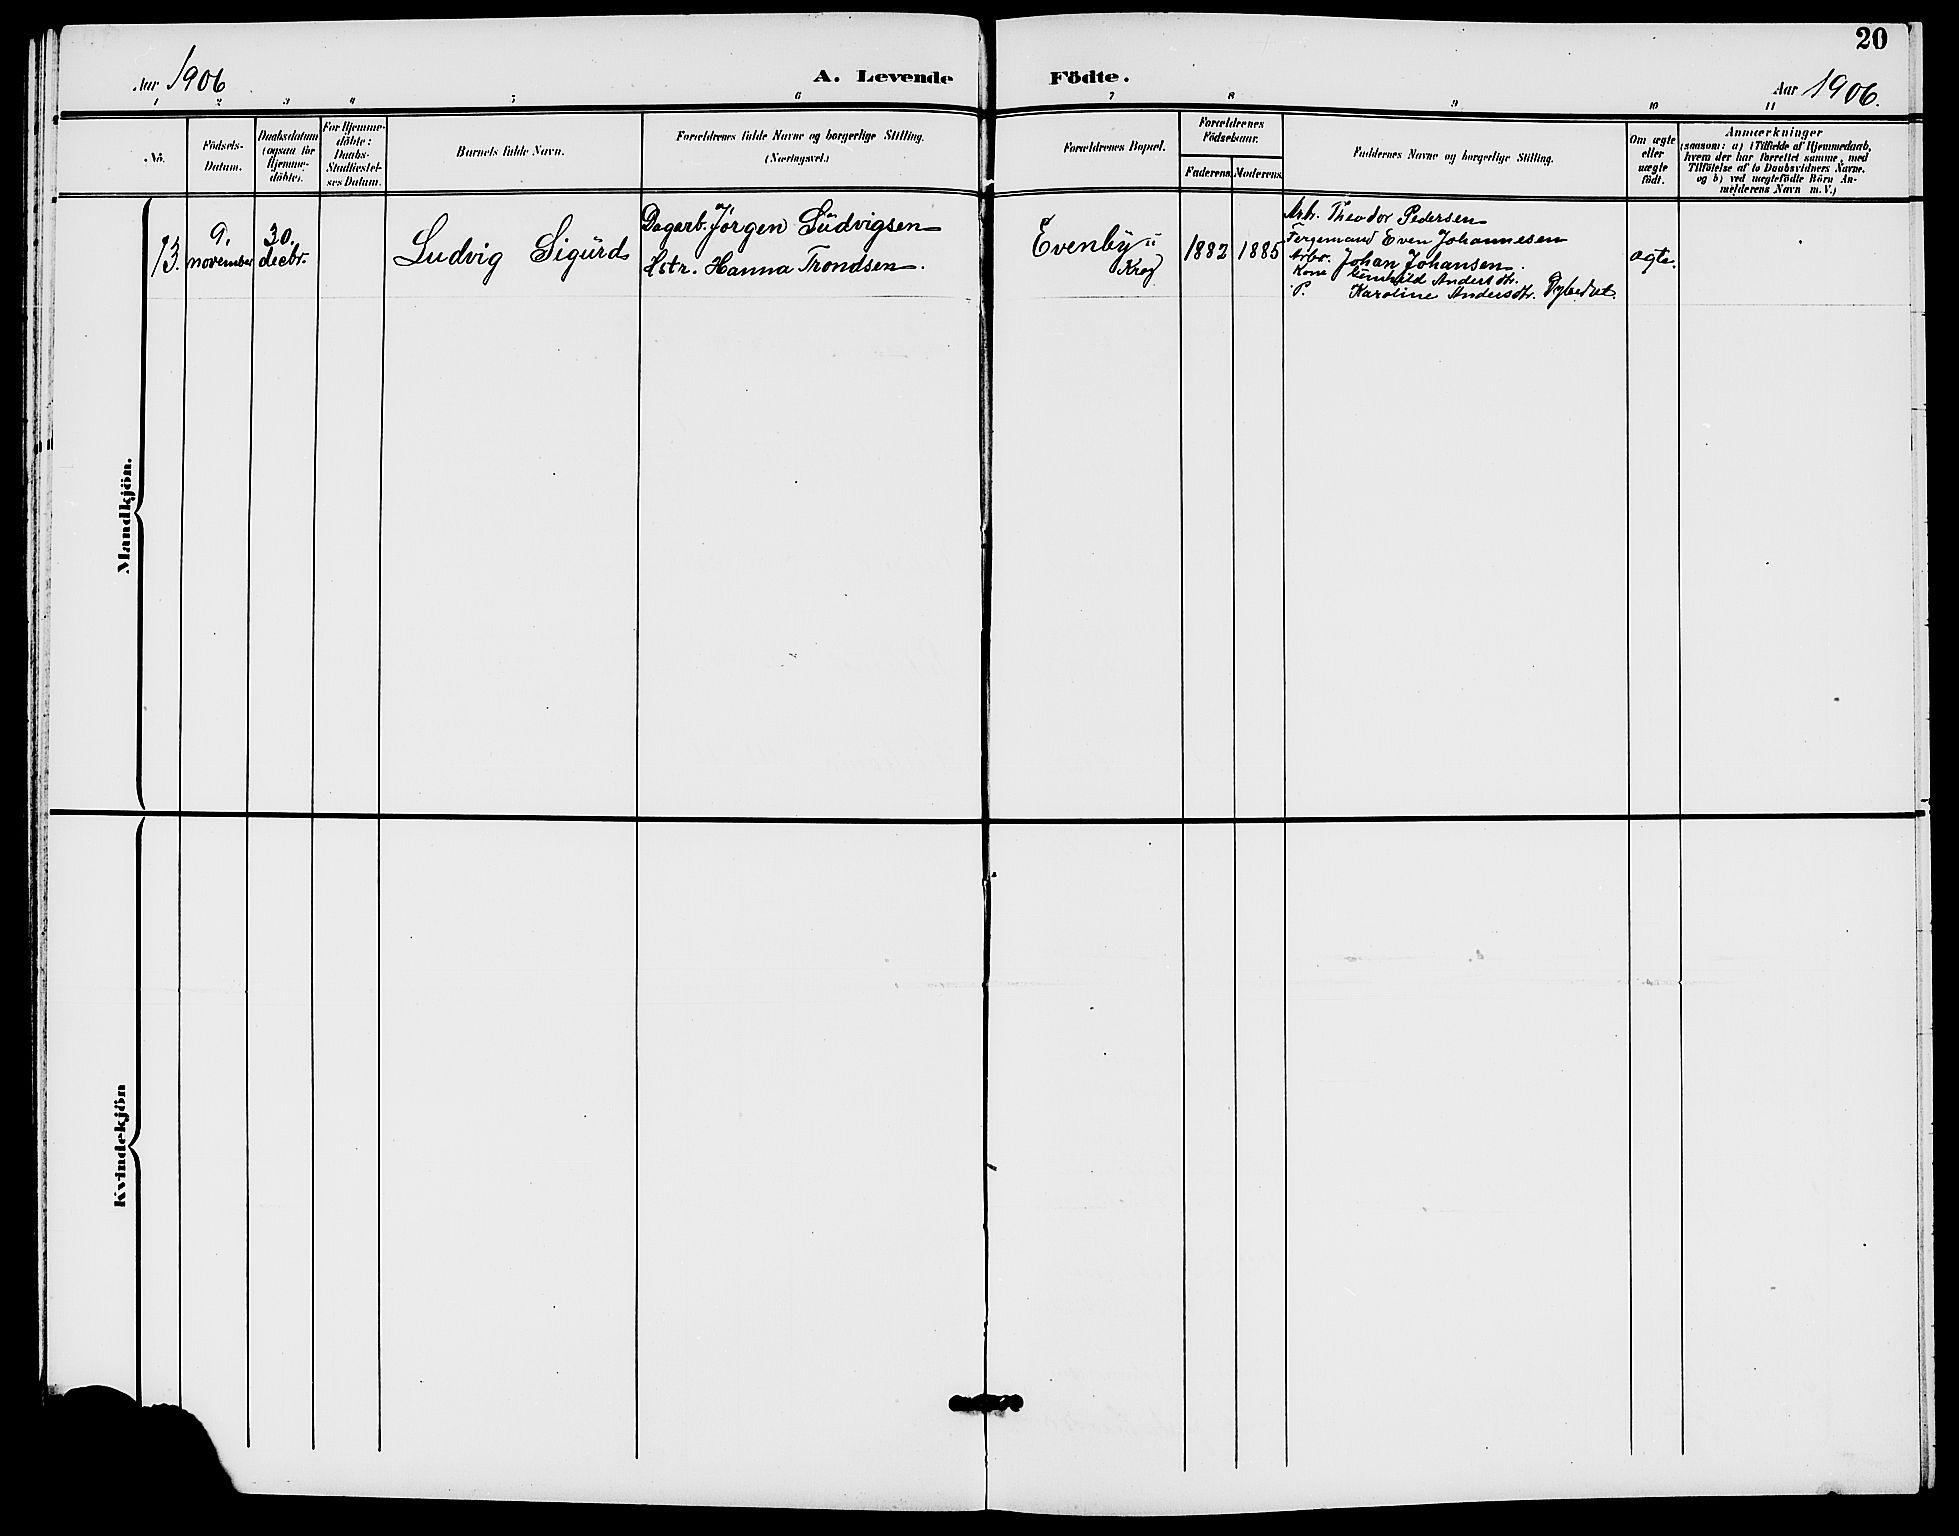 20
Aar 1906
A. Levende Födte.
Aar 1906.
1 2 3 4 5 6 7 8 9 10 11
No.
Födsels-
Datum.
Daabsdatum
(ogsaa for
Hjemme-
döbte).
For Hjemme-
döbte:
Daabs-
Stadfæstel-
ses Datum.
Barnets fulde Navn.
Forældrenes fulde Navne og borgerlige Stilling.
(Næringsvei.)
Forældrenes Bopæl.
Forældrenes
Födselsaar.
Faderens. Moderens.
Faddernes Navne og borgerlige Stilling.
Om ægte
eller
uægte
födt.
Anmærkninger
(saasom: a) i Tilfælde af Hjemmedaab,
hvem der har forrettet samme, med
Tilföielse af to Daabsvidners Navne.
og b) ved uægtefödte Börn An-
melderens Navn m.V.)
Mandkjön.
13.
9.
november
30.
decbr.
Ludvig Sigurd
Dagarb. Jørgen Ludvigsen
Hstr. Hanna Trondsen.
Evenby u
Krog
1882
1885
Arb. Theodor Pedersen
Fergemand Even Johannesen
Arbr. Johan Johansen.
Kone Gunhild Andersdtr.
P. Karoline Andersdtr.
ægte.
Kvindekjön